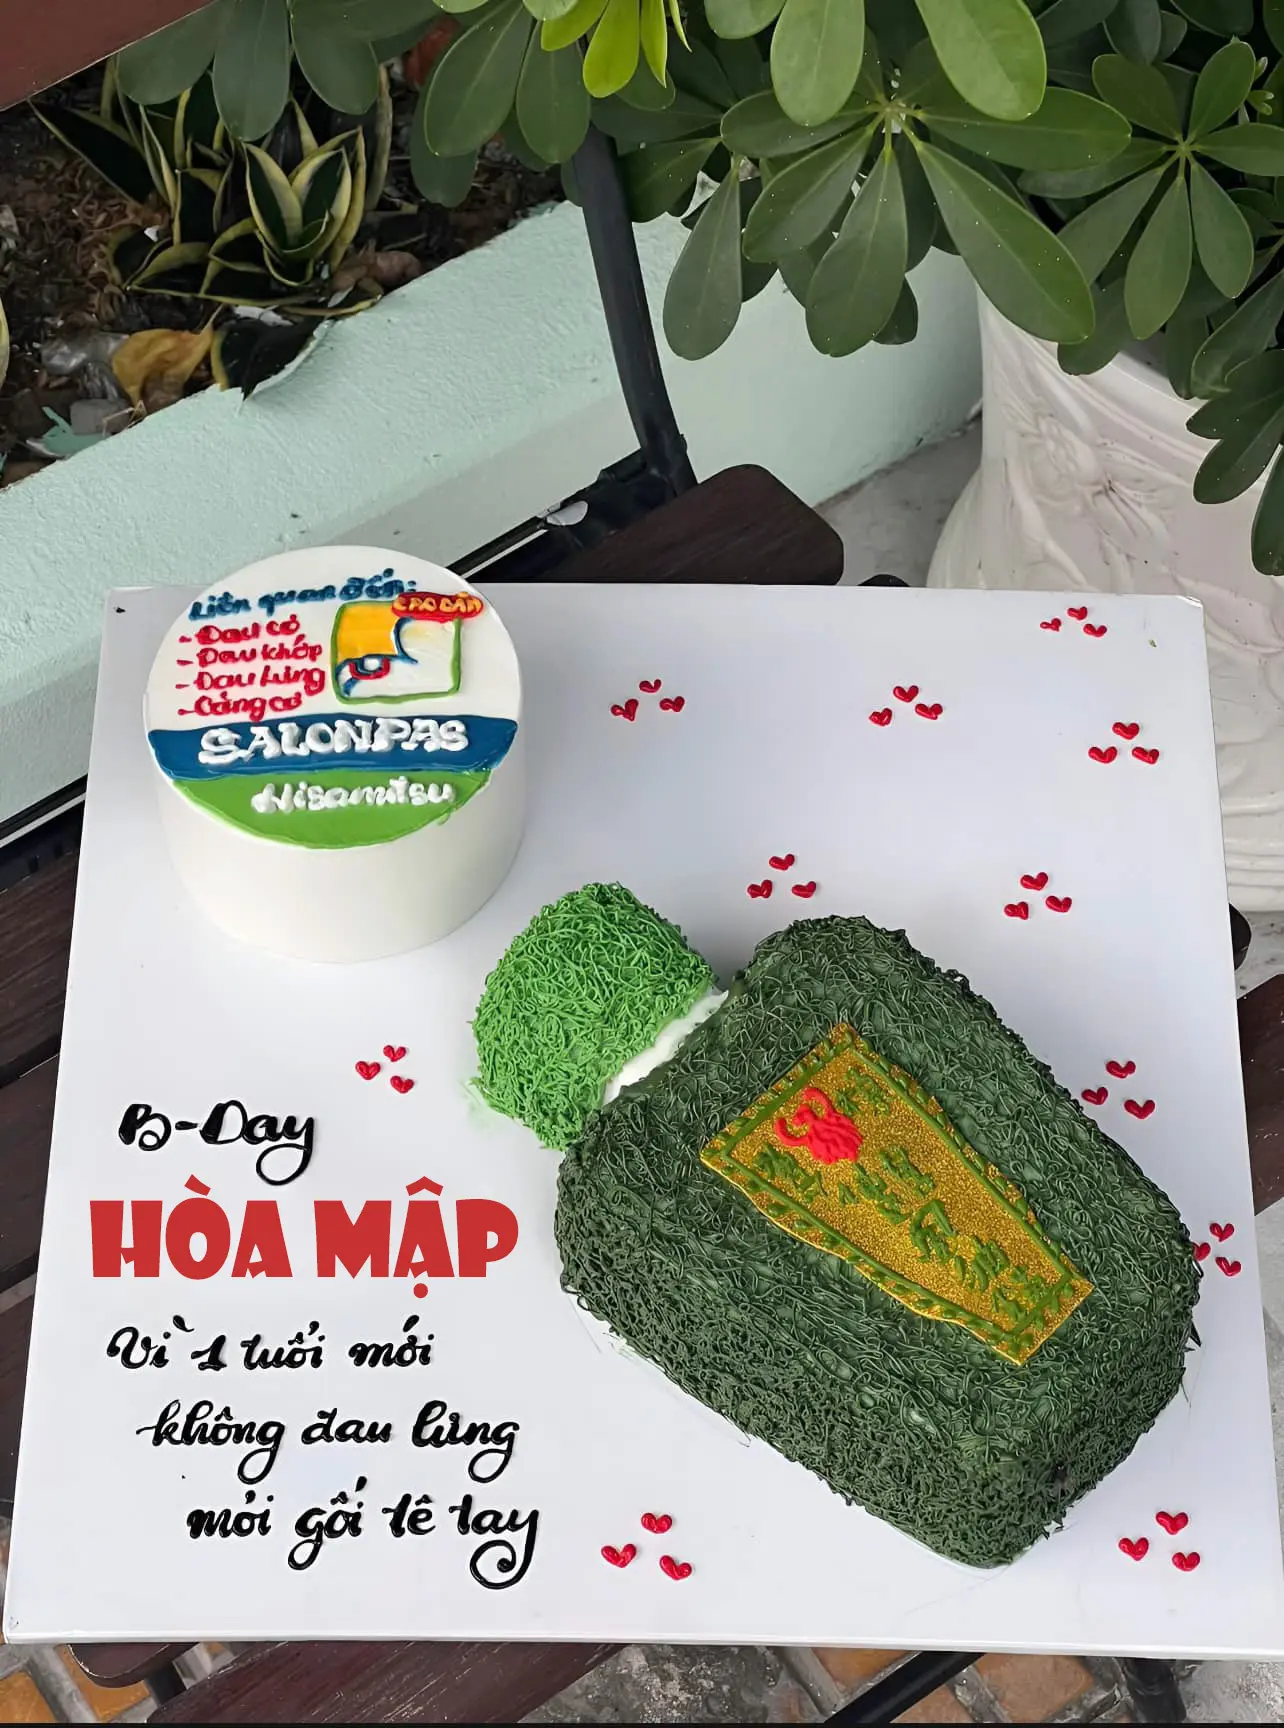 Liên quan đến:
CAO DÁN
- Đau cơ
- Đau khớp
- Đau lưng
- Căng cơ
SALONPAS
Hisamitsu
B-Day
HÒA MẬP
Vì 1 tuổi mới
không đau lưng
mỏi gối tê tay